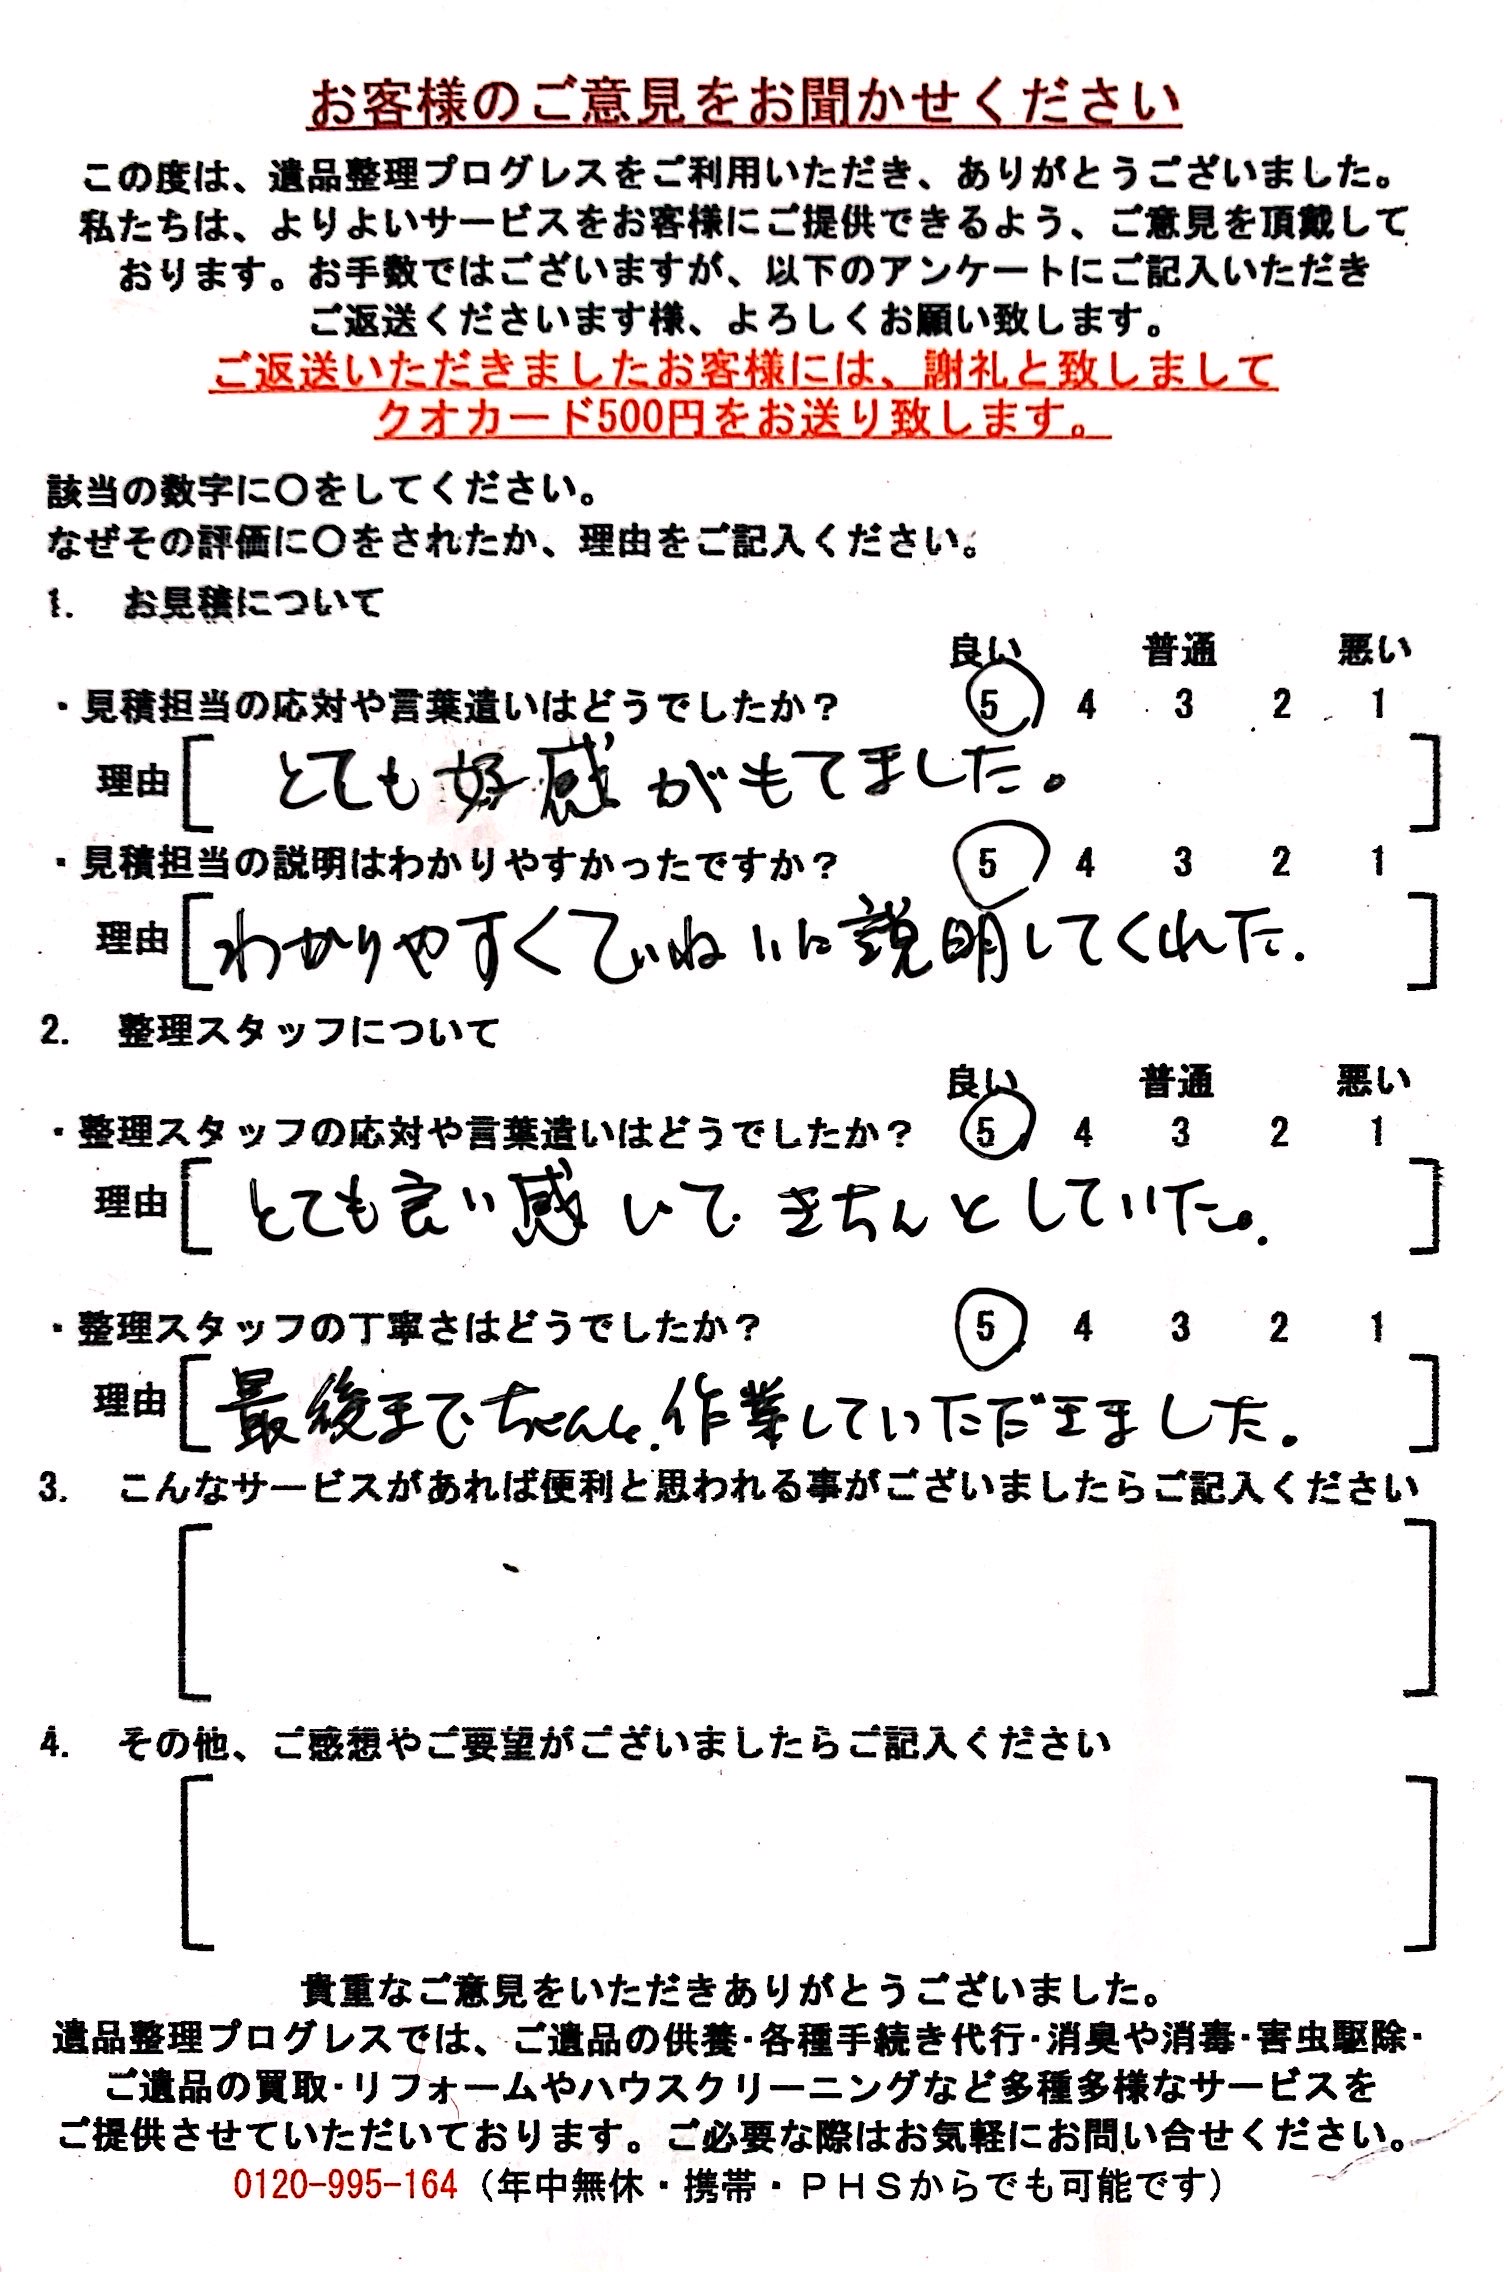 お客様のご意見をお聞かせください
この度は、遺品整理プログレスをご利用いただき、ありがとうございました。
私たちは、よりよいサービスをお客様にご提供できるよう、ご意見を頂戴して
おります。お手数ではございますが、以下のアンケートにご記入いただき
ご返送くださいます様、よろしくお願い致します。
ご返送いただきましたお客様には、謝礼と致しまして
クオカード500円をお送り致します。
該当の数字に〇をしてください。
なぜその評価に〇をされたか、理由をご記入ください。
1. お見積について
良い 普通 悪い
・見積担当の応対や言葉遣いはどうでしたか? 5 4 3 2 1
理由 [とても好感がもてました。]
・見積担当の説明はわかりやすかったですか? 5 4 3 2 1
理由 [わかりやすくていねいに説明してくれた.]
2. 整理スタッフについて
良い 普通 悪い
・整理スタッフの応対や言葉遣いはどうでしたか? 5 4 3 2 1
理由 [とても良い感いで きちんとしていた。]
・整理スタッフの丁寧さはどうでしたか? 5 4 3 2 1
理由 [最後までちゃんと作業していただきました。]
3. こんなサービスがあれば便利と思われる事がございましたらご記入ください
4. その他、ご感想やご要望がございましたらご記入ください
貴重なご意見をいただきありがとうございました。
遺品整理プログレスでは、ご遺品の供養・各種手続き代行・消臭や消毒・害虫駆除・
ご遺品の買取・リフォームやハウスクリーニングなど多種多様なサービスを
ご提供させていただいております。ご必要な際はお気軽にお問い合せください。
0120-995-164（年中無休・携帯・ＰＨＳからでも可能です）